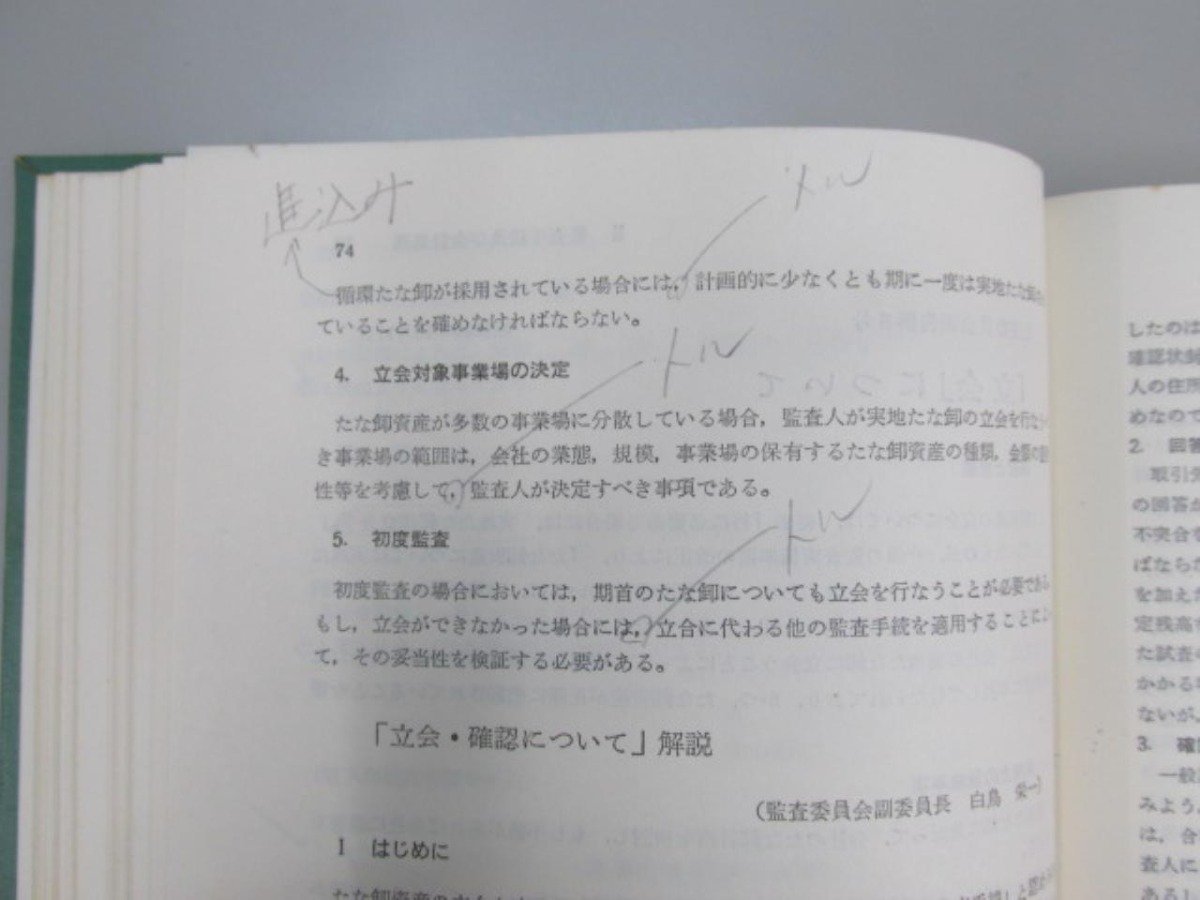 追込み
トル
74
循環たな卸が採用されている場合には，計画的に少なくとも期に一度は実地たな卸
ていることを確めなければならない。
トル
4. 立会対象事業場の決定
たな卸資産が多数の事業場に分散している場合，監査人が実地たな卸の立会を行なうべ
き事業場の範囲は，会社の業態，規模，事業場の保有するたな卸資産の種類，金額の
性等を考慮して，監査人が決定すべき事項である。
トル
5. 初度監査
初度監査の場合においては，期首のたな卸についても立会を行なうことが必要である
もし，立会ができなかった場合には，立合に代わる他の監査手続を適用することによ
て，その妥当性を検証する必要がある。
「立会・確認について」解説
（監査委員会副委員長 白鳥 栄一）
I はじめに
したのは
確認状
人の住所
めなので
2. 回答
取引先
の回答が
不突合
ばならな
を加えた
定残高
た試査
かかる
ないが，
3. 確
一般
みよう
は，合
査人に
あるし